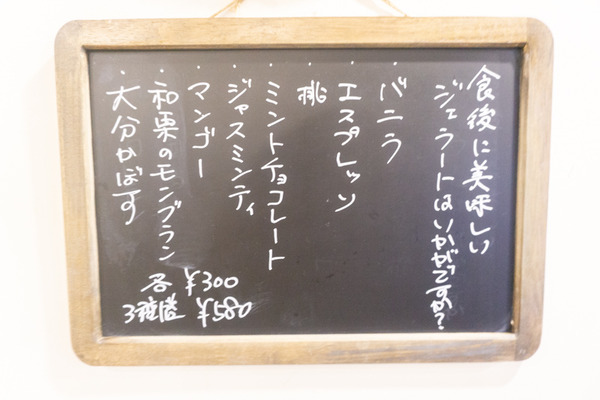 食後に美味しい
ジェラートはいかがですか?
・バニラ
・エスプレッソ
・桃
・ミントチョコレート
・ジャスミンティ
・マンゴー
・和栗のモンブラン
・大分かぼす
各 ¥300
3種盛 ¥580